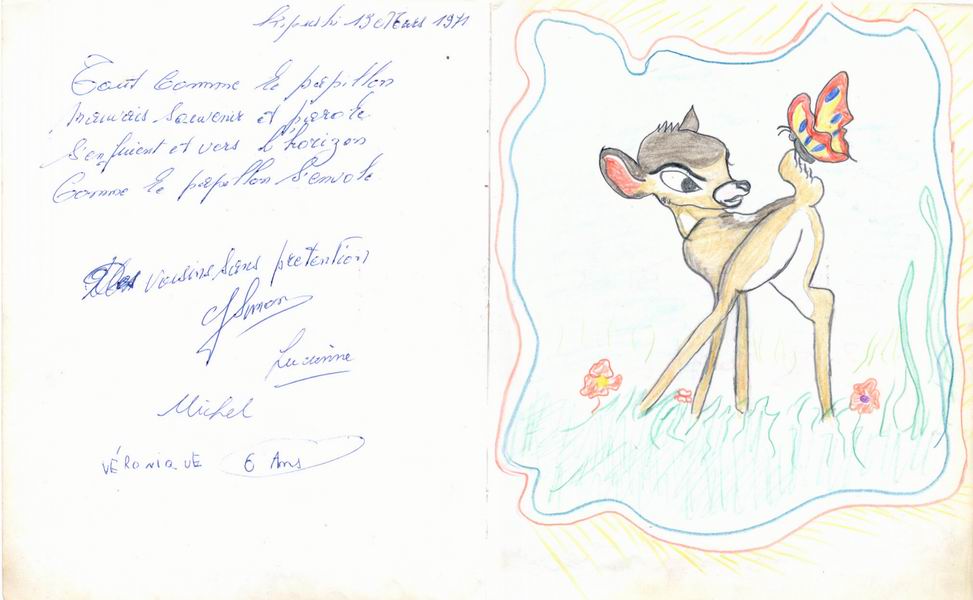 13 Mars 1971
Tout comme le papillon
Mauvais souvenir et pirole
S'enfuient et vers l'horizon
Comme le papillon s'envole
Des voisins sans pretention
Simon
Lucienne
Michel
VÉRONIQUE 6 Ans